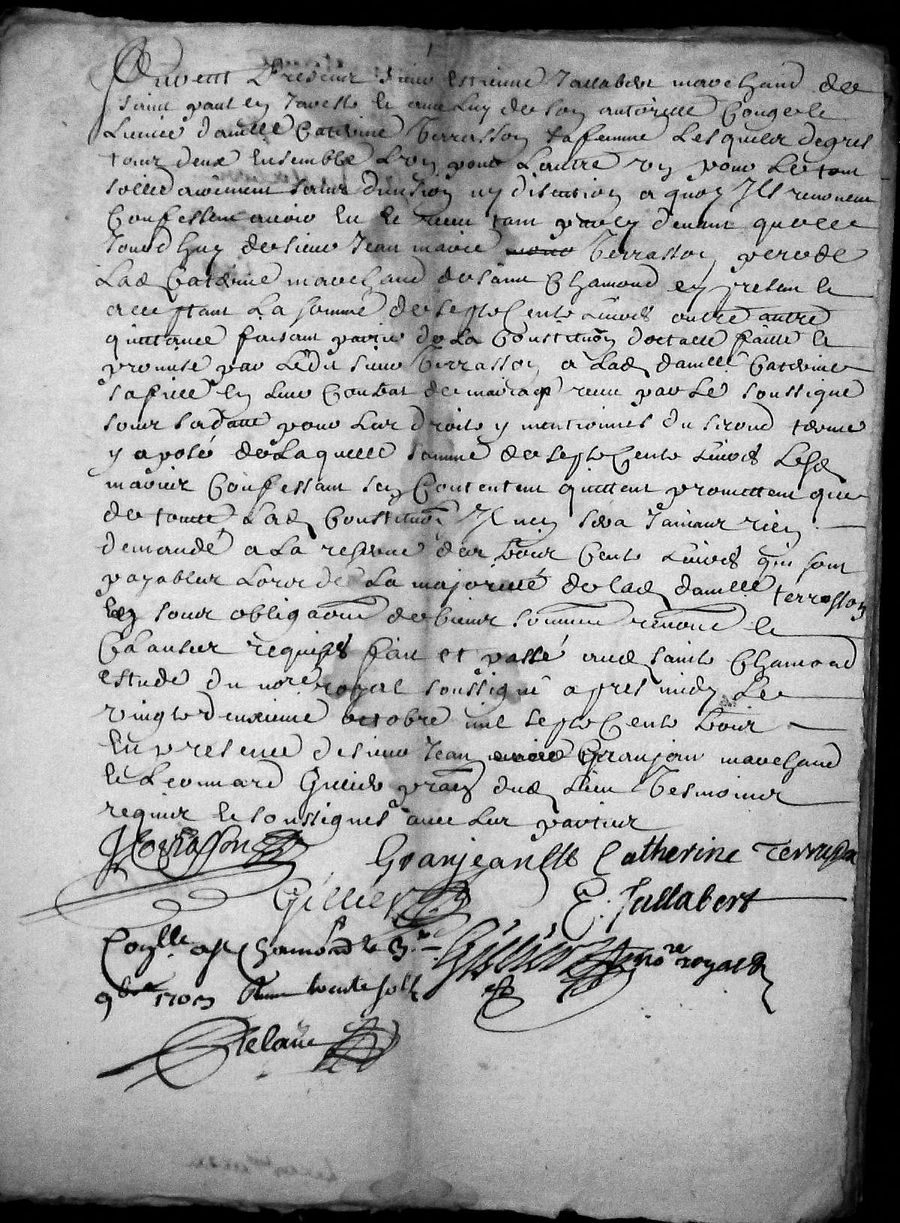 Furent Presens sieur Estienne Jallabert marchand de
saint paul en Jarests et avec Luy de son autorité Congé et
Licence damlle Catérine Terrasson sa femme Lesquels de gres
tous deux Ensemble L'un pour L'autre un pour Le tout
sollidairement sans division ny discution a quoy Ils renoncent
Confessent avoir Eu et receu tant par cy devant que ce
Jourdhuy de sieur Jean marie Terrasson pere de
Lade Catérine marchand de saint Chamond en present et
acceptant La somme de septs Cents Livres outre autre
quittance faisant partie de La Constitution dotalle faitte et
promise par Ledit sieur Terrasson a Lade damlle Catérine
sa fille En leur Contrat de mariage receu par Le soussigné
sous sa datte pour Les droits y mentionnés du segond terme
y aposé de Laquelle somme de septs Cents Livres Lesd
mariez Confessant sen Contentent quittent promettent que
de toutte Lade Constitution Il n'en sera Jamais rien
demandé a La reserve des Cents Livres qui sont
payables Lors de La majorité de lade damlle terrasson
sous obligaõn de Leurs somme renonce et
Clauses requises fait et passé aud saints Chamond
Estude du nore royal soussigné apres midy Le
vingts deuxieme octobre mil septs Cents trois
En presence de sieur Jean Granjon marchand
et Leonnard Gillier prat dud Lieu Tesmoins
requis et soussignés avec Les parties
JTerrasson Granjean Catherine Terrasson
Gillier E. Jallabert
Conlle a St Chamond le 3e Gillier nore royal
9bre 1703 Receu trente sols
Delaue